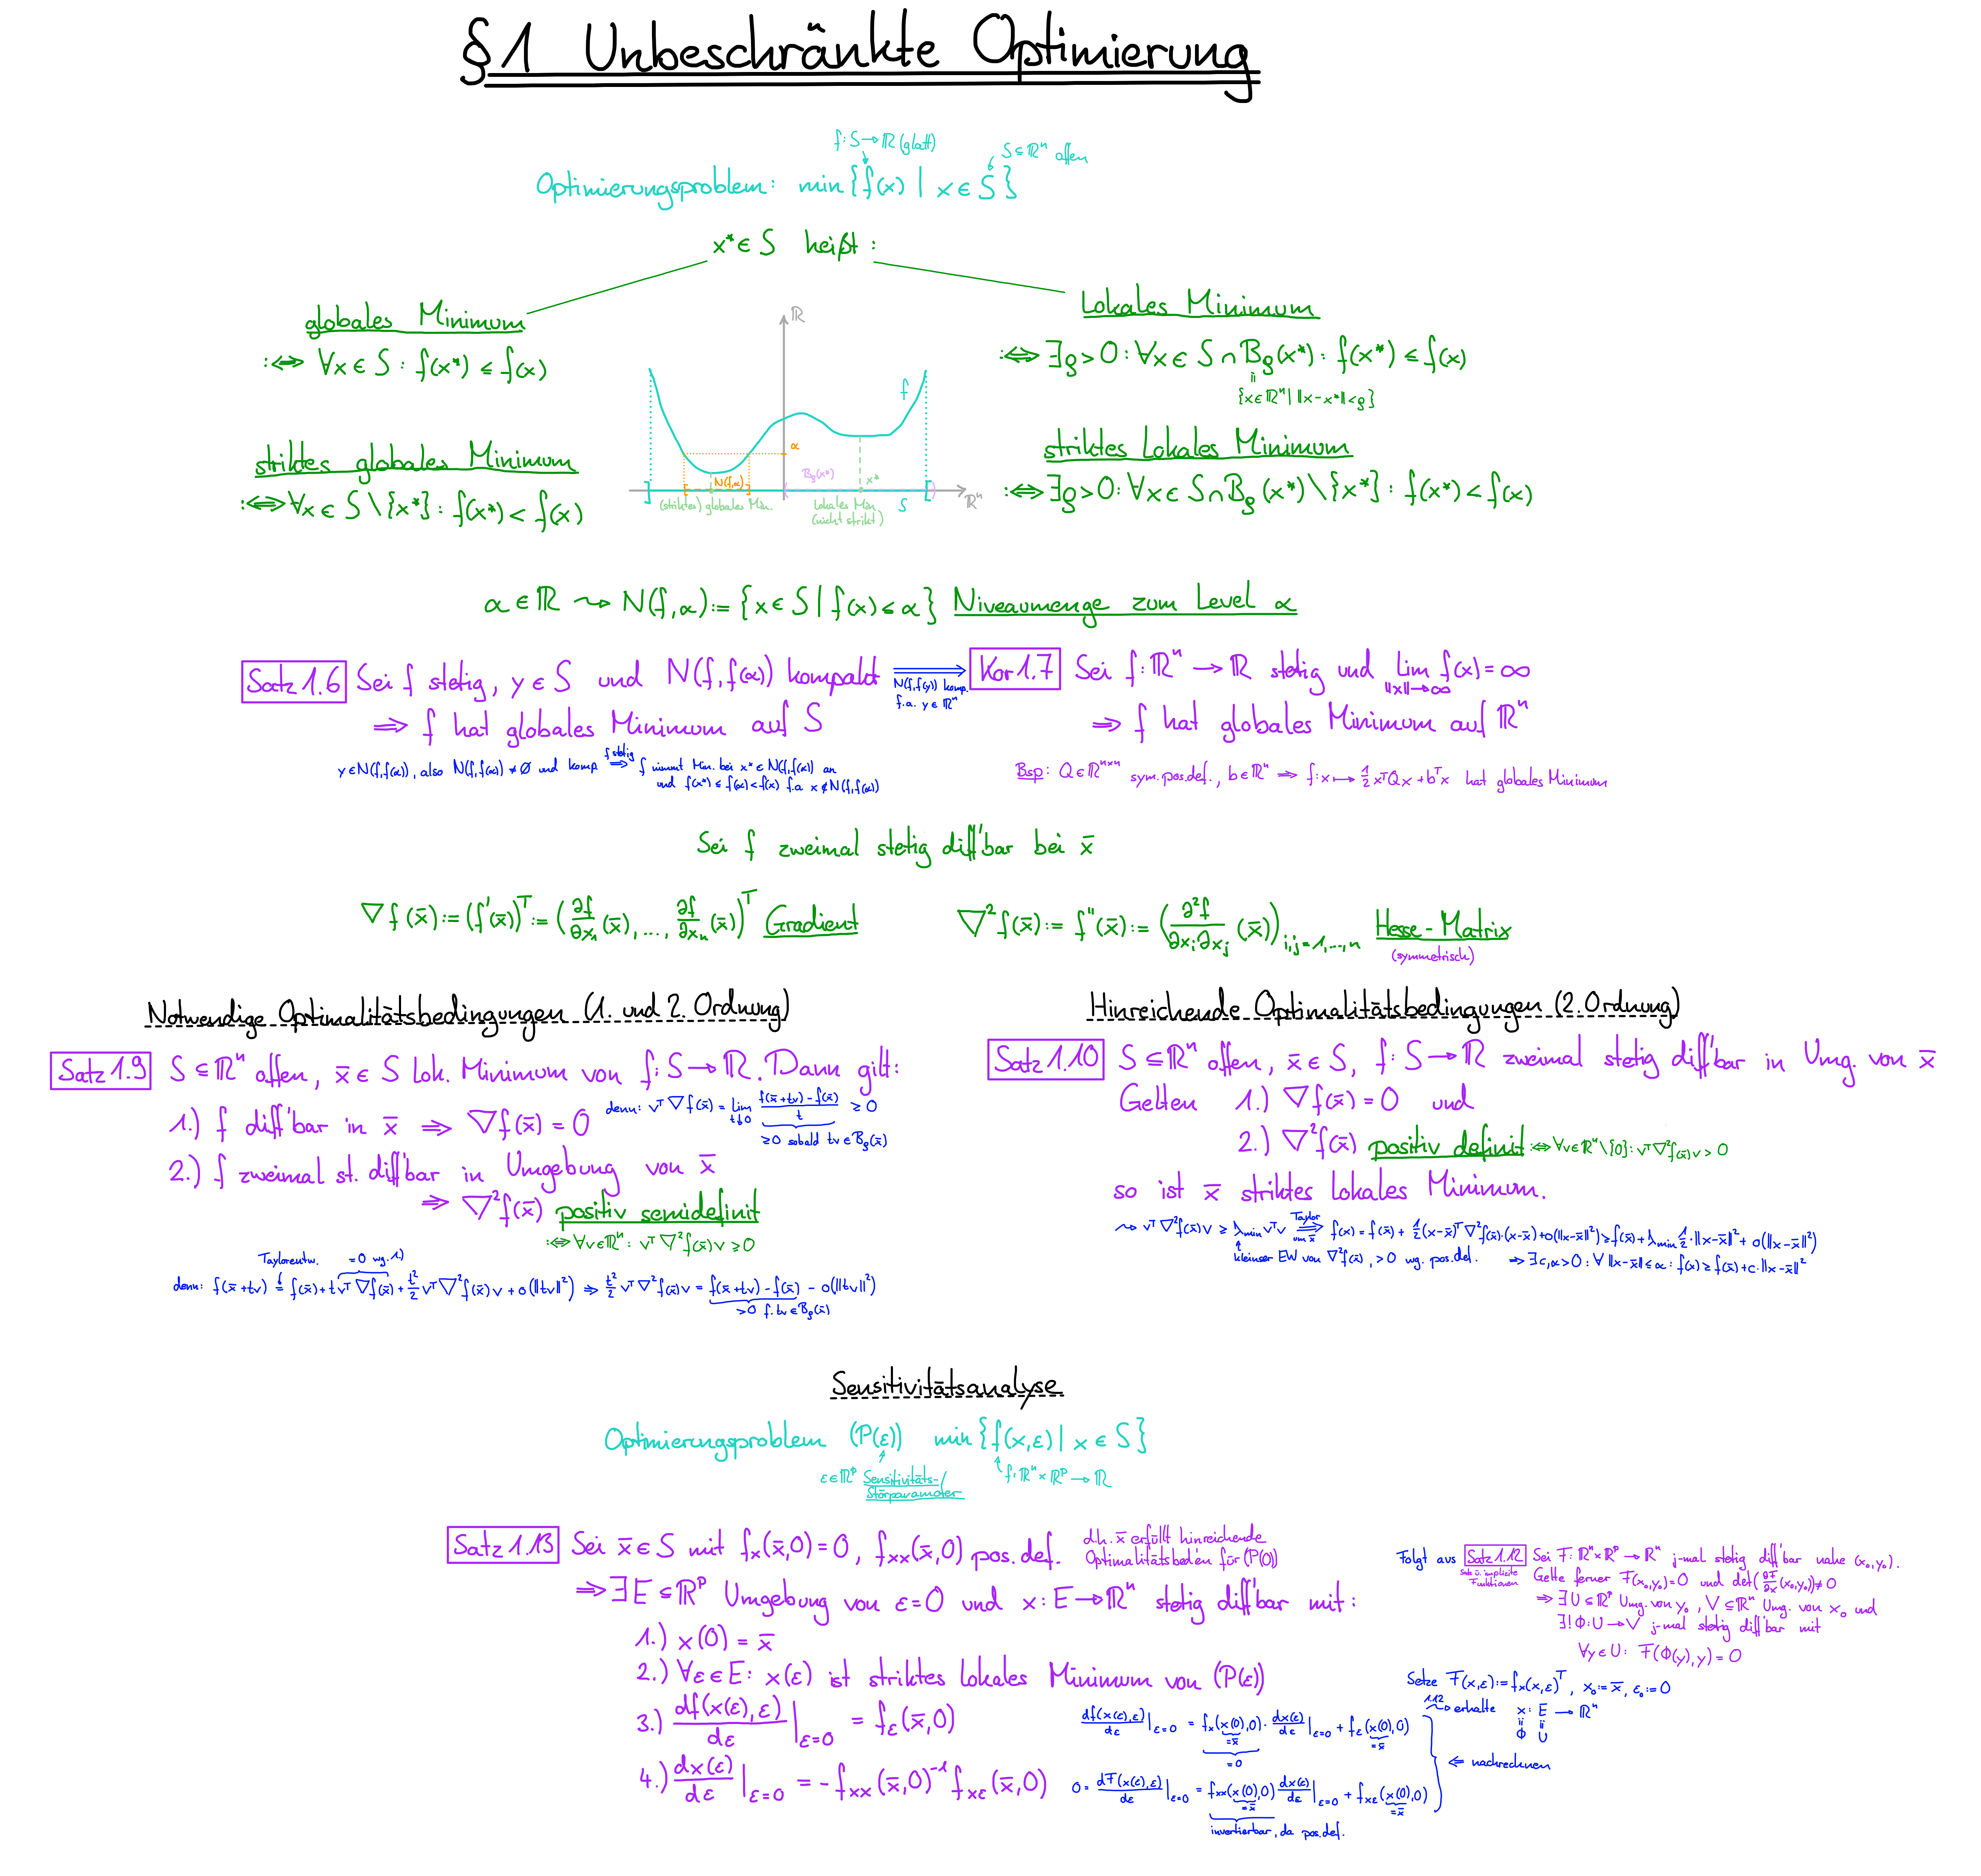 §1 Unbeschränkte Optimierung
f: S → ℝ (glatt)
S ⊆ ℝⁿ offen
Optimierungsproblem: min {f(x) | x ∈ S}
x* ∈ S heißt:
globales Minimum
:⇔ ∀x ∈ S : f(x*) ≤ f(x)
striktes globales Minimum
:⇔ ∀x ∈ S \ {x*} : f(x*) < f(x)
ℝ
f
α
B_ρ(x*)
N(f,α)
x*
(striktes) globales Min.
Lokales Min
(nicht strikt)
S
ℝⁿ
Lokales Minimum
:⇔ ∃ρ > 0 : ∀x ∈ S ∩ B_ρ(x*) : f(x*) ≤ f(x)
{x ∈ ℝⁿ | ‖x-x*‖ < ρ}
striktes Lokales Minimum
:⇔ ∃ρ > 0 : ∀x ∈ S ∩ B_ρ(x*) \ {x*} : f(x*) < f(x)
α ∈ ℝ ⇝ N(f,α) := {x ∈ S | f(x) ≤ α} Niveaumenge zum Level α
Satz 1.6 Sei f stetig, y ∈ S und N(f,f(α)) kompakt
⇒ f hat globales Minimum auf S
y ∈ N(f,f(α)), also N(f,f(α)) ≠ ∅ und komp f stetig ⇒ f nimmt Min. bei x* ∈ N(f,f(α)) an
und f(x*) ≤ f(α) < f(x) f.a. x ∉ N(f,f(α))
⇒ N(f,f(y)) komp.
f.a. y ∈ ℝⁿ
Kor 1.7 Sei f: ℝⁿ → ℝ stetig und lim_{‖x‖→∞} f(x) = ∞
⇒ f hat globales Minimum auf ℝⁿ
Bsp: Q ∈ ℝⁿˣⁿ sym. pos. def., b ∈ ℝⁿ ⇒ f: x ↦ ½ xᵀQx + bᵀx hat globales Minimum
Sei f zweimal stetig diff'bar bei x̄
∇f(x̄) := (f'(x̄))ᵀ := (∂f/∂x₁(x̄), ..., ∂f/∂xₙ(x̄))ᵀ Gradient
∇²f(x̄) := f''(x̄) := (∂²f/∂xᵢ∂xⱼ (x̄))_{i,j=1,...,n} Hesse-Matrix
(symmetrisch)
Notwendige Optimalitätsbedingungen (1. und 2. Ordnung)
Satz 1.9 S ⊆ ℝⁿ offen, x̄ ∈ S lok. Minimum von f: S → ℝ. Dann gilt:
1.) f diff'bar in x̄ ⇒ ∇f(x̄) = 0
denn: vᵀ∇f(x̄) = lim_{t↓0} (f(x̄+tv) - f(x̄))/t ≥ 0
≥0 sobald tv ∈ B_ρ(x̄)
2.) f zweimal st. diff'bar in Umgebung von x̄
⇒ ∇²f(x̄) positiv semidefinit
:⇔ ∀v ∈ ℝⁿ : vᵀ∇²f(x̄)v ≥ 0
Taylorentw. =0 wg. 1)
denn: f(x̄+tv) = f(x̄) + tvᵀ∇f(x̄) + t²/2 vᵀ∇²f(x̄)v + o(‖tv‖²) ⇒ t²/2 vᵀ∇²f(x̄)v = f(x̄+tv) - f(x̄) - o(‖tv‖²)
>0 f. tv ∈ B_ρ(x̄)
Hinreichende Optimalitätsbedingungen (2. Ordnung)
Satz 1.10 S ⊆ ℝⁿ offen, x̄ ∈ S, f: S → ℝ zweimal stetig diff'bar in Umg. von x̄
Gelten 1.) ∇f(x̄) = 0 und
2.) ∇²f(x̄) positiv definit :⇔ ∀v ∈ ℝⁿ \ {0} : vᵀ∇²f(x̄)v > 0
so ist x̄ striktes lokales Minimum.
⇝ vᵀ∇²f(x̄)v ≥ λ_min vᵀv Taylor ⇒ um x̄ f(x) = f(x̄) + ½(x-x̄)ᵀ∇²f(x̄)·(x-x̄) + o(‖x-x̄‖²) ≥ f(x̄) + λ_min ½·‖x-x̄‖² + o(‖x-x̄‖²)
kleinster EW von ∇²f(x̄), >0 wg. pos. def. ⇒ ∃c,α > 0 : ∀ ‖x-x̄‖ ≤ α : f(x) ≥ f(x̄) + c·‖x-x̄‖²
Sensitivitätsanalyse
Optimierungsproblem (P(ε)) min {f(x,ε) | x ∈ S}
ε ∈ ℝᵖ Sensitivitäts-/
Störparameter
f: ℝⁿ × ℝᵖ → ℝ
Satz 1.13 Sei x̄ ∈ S mit f_x(x̄,0) = 0, f_xx(x̄,0) pos. def.
d.h. x̄ erfüllt hinreichende
Optimalitätsbed'en für (P(0))
⇒ ∃E ⊆ ℝᵖ Umgebung von ε=0 und x: E → ℝⁿ stetig diff'bar mit:
1.) x(0) = x̄
2.) ∀ε ∈ E: x(ε) ist striktes lokales Minimum von (P(ε))
3.) df(x(ε),ε)/dε |_{ε=0} = f_ε(x̄,0)
4.) dx(ε)/dε |_{ε=0} = -f_xx(x̄,0)⁻¹ f_xε(x̄,0)
Folgt aus Satz 1.12 Sei F: ℝⁿ × ℝᵖ → ℝⁿ j-mal stetig diff'bar nahe (x₀,y₀).
Satz ü. implizite
Funktionen
Gelte ferner F(x₀,y₀) = 0 und det(∂F/∂x (x₀,y₀)) ≠ 0
⇒ ∃U ⊆ ℝᵖ Umg. von y₀, V ⊆ ℝⁿ Umg. von x₀ und
∃! Φ: U → V j-mal stetig diff'bar mit
∀y ∈ U: F(Φ(y),y) = 0
Setze F(x,ε) := f_x(x,ε)ᵀ, x₀ := x̄, ε₀ := 0
1.12 ⇝ erhalte x: E → ℝⁿ
Φ U
df(x(ε),ε)/dε |_{ε=0} = f_x(x(0),0) · dx(ε)/dε |_{ε=0} + f_ε(x(0),0)
=x̄ =x̄
=0
⇐ nachrechnen
0 = dF(x(ε),ε)/dε |_{ε=0} = f_xx(x(0),0) dx(ε)/dε |_{ε=0} + f_xε(x(0),0)
=x̄ =x̄
invertierbar, da pos. def.